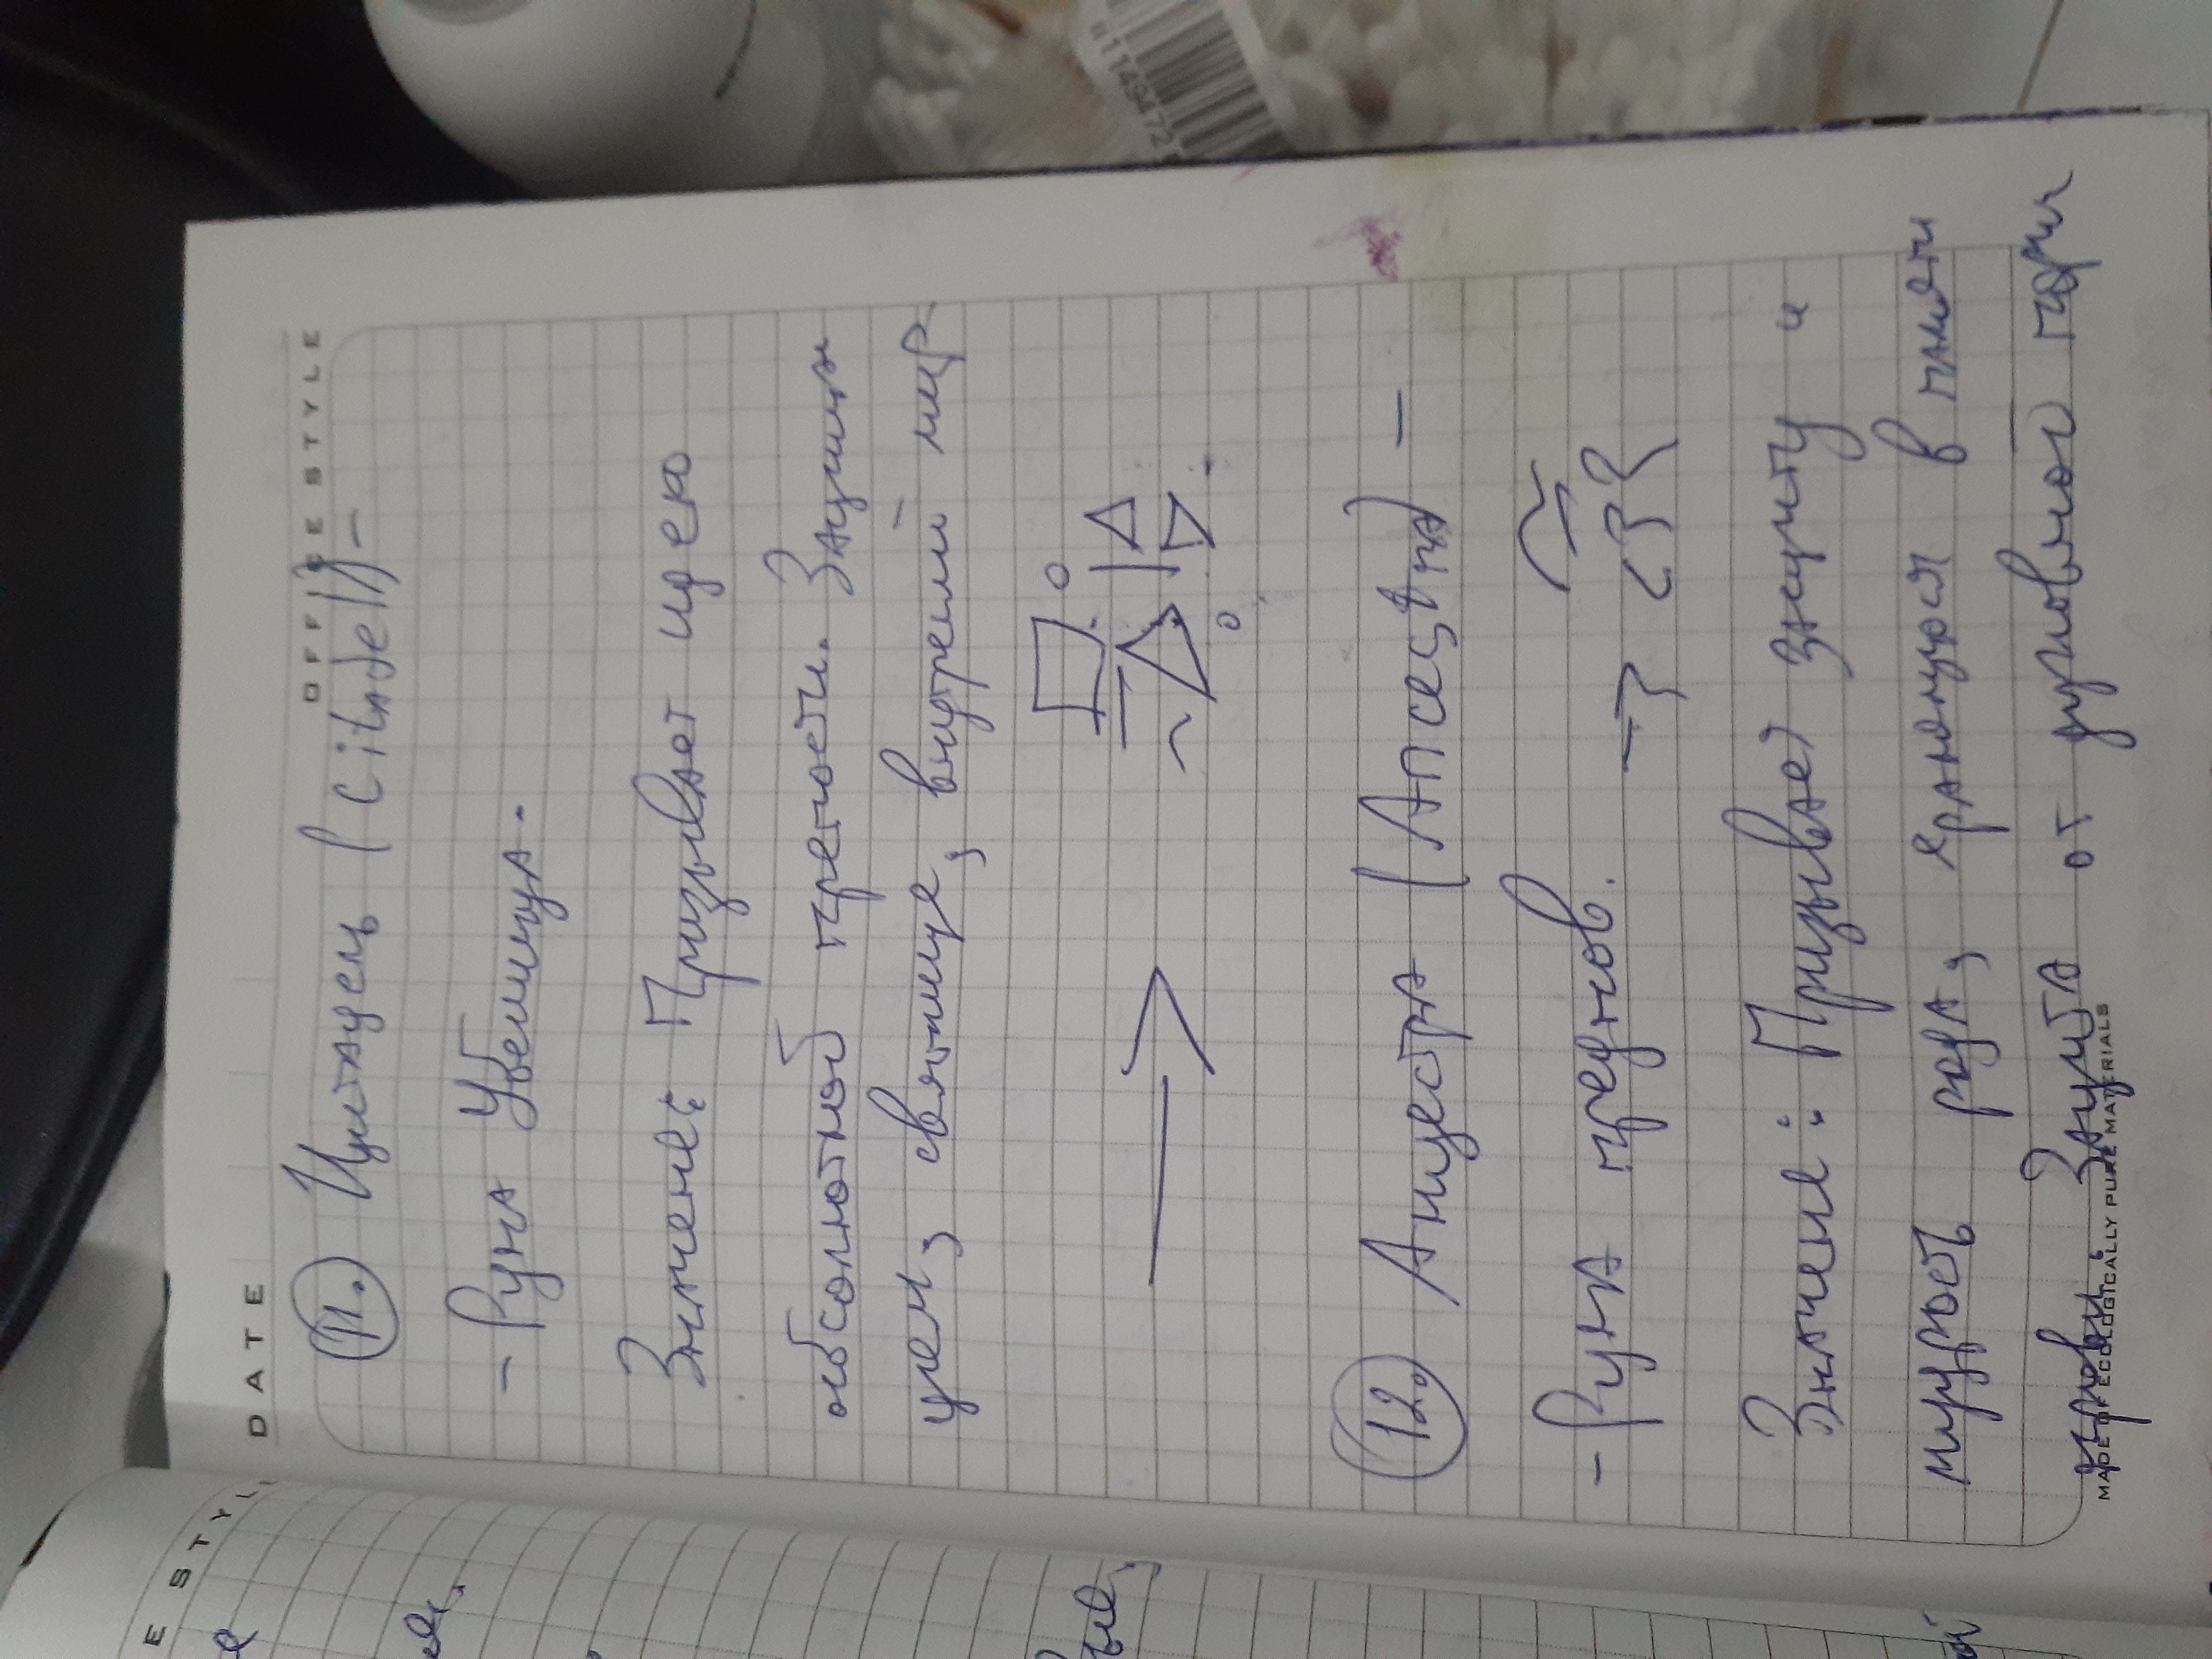 DATE
OFFICE STYLE
11. Цитадель (Citadell) –
– Руна Убежища.
Значение: Призывает идею
абсолютной крепости. Защита
цель, святилище, внутренний мир
12. Анцестра (Ancestra) –
– Руна предков.
Значение: Призывает защиту и
мудрость рода, хранящуюся в памяти
крови. Защита от духовной порчи
MADE OF ECOLOGICALLY PURE MATERIALS
E STYLE
 u1149472